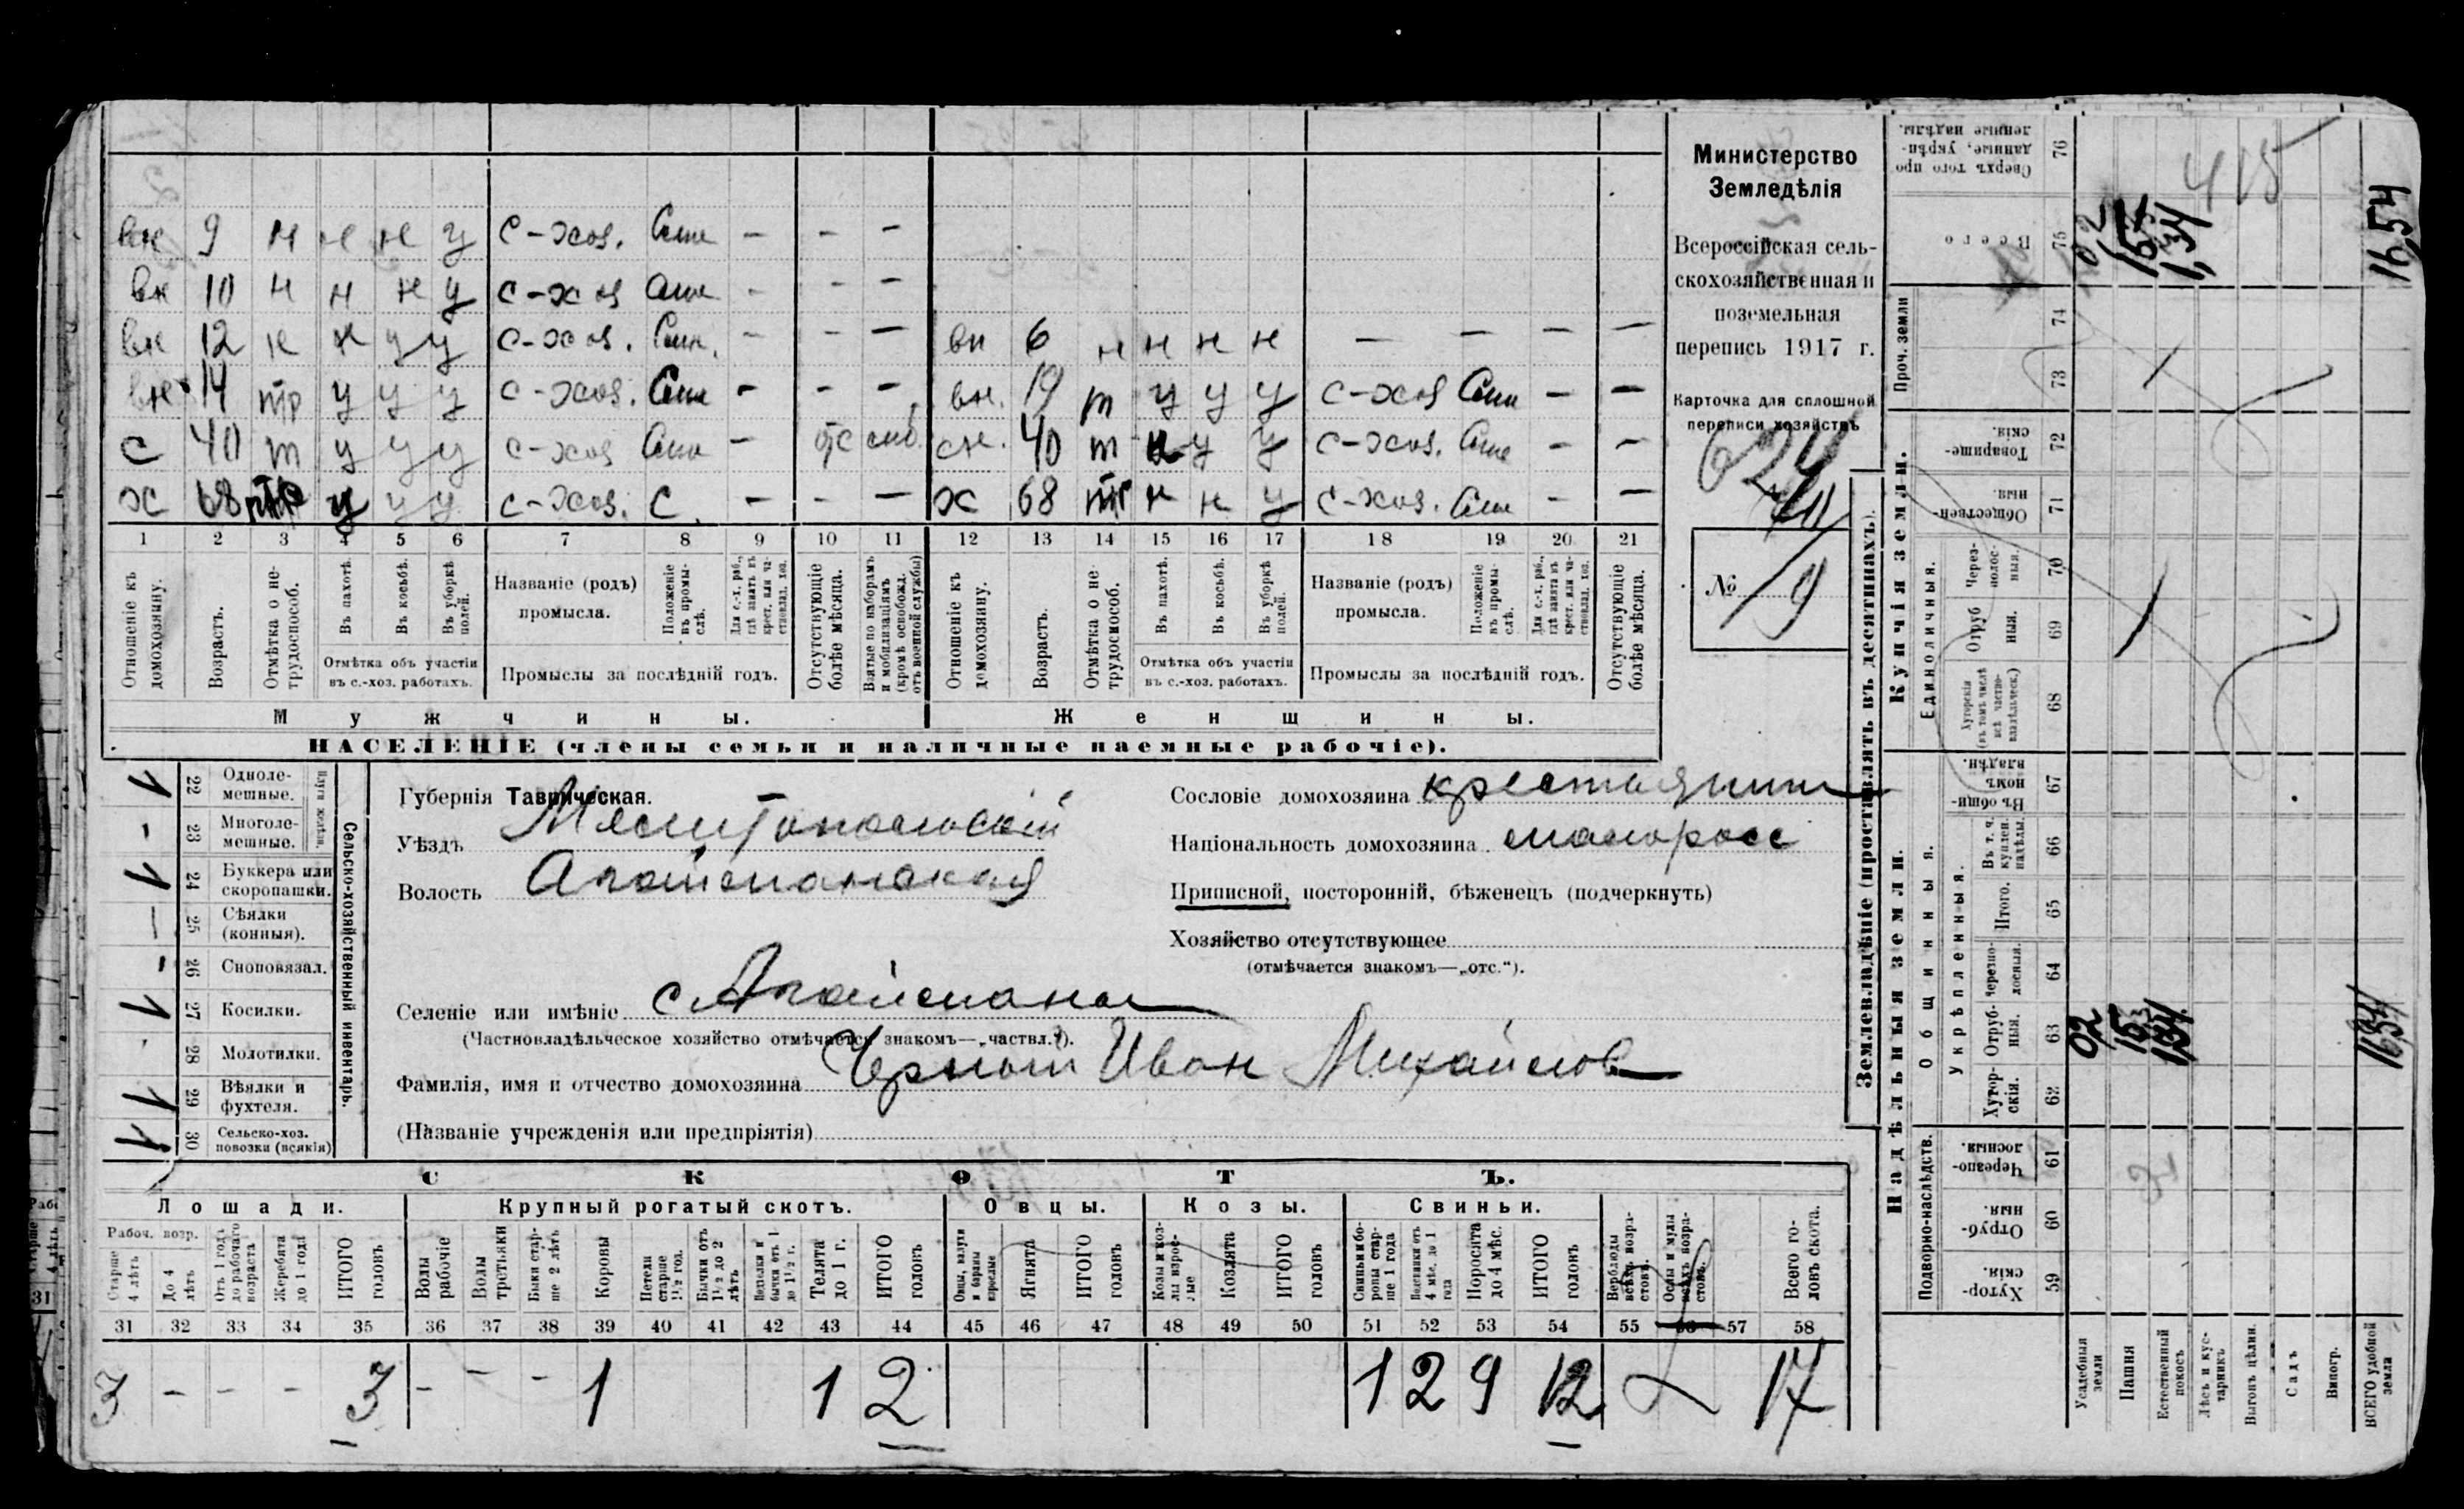 вн 9 н н н у с-хоз. Сам — — —
вн 10 н н н у с-хоз Сам — — —
вн 12 н н у у с-хоз. Сам. — — — вн 6 н н н н — — — —
вн 14 тр у у у с-хоз. Сам — — — вн. 19 т у у у с-хоз Сам — —
с 40 т у у у с-хоз Сам — отс сн. 40 т н у у с-хоз. Сам — —
х 68 у у у с-хоз. С. — — — х 68 н н у с-хоз. Сам — —
1 2 3 4 5 6 7 8 9 10 11 12 13 14 15 16 17 18 19 20 21
Отношеніе къ домохозяину.
Возрастъ.
Отмѣтка о нетрудоспособ.
Въ пахотѣ.
Въ косьбѣ.
Въ уборкѣ полей.
Отмѣтка объ участіи
въ с.-хоз. работахъ.
Названіе (родъ)
промысла.
Положеніе въ промыслѣ.
Для с.-х. раб., гдѣ занятъ въ крест. или частновлад. хоз.
Промыслы за послѣдній годъ.
Отсутствующіе болѣе мѣсяца.
Взятые по наборамъ и мобилизаціямъ (кромѣ освобожд. отъ военной службы)
Отношеніе къ домохозяину.
Возрастъ.
Отмѣтка о нетрудоспособ.
Въ пахотѣ.
Въ косьбѣ.
Въ уборкѣ полей.
Отмѣтка объ участіи
въ с.-хоз. работахъ.
Названіе (родъ)
промысла.
Положеніе въ промыслѣ.
Для с.-х. раб., гдѣ занята въ крест. или частновлад. хоз.
Промыслы за послѣдній годъ.
Отсутствующіе болѣе мѣсяца.
Мужчины. Женщины.
НАСЕЛЕНІЕ (члены семьи и наличные наемные рабочіе).
Министерство
Земледѣлія
Всероссійская сель-
скохозяйственная и
поземельная
перепись 1917 г.
Карточка для сплошной
переписи хозяйствъ
624
№ 9
Сельско-хозяйственный инвентарь.
Плуги желѣзн.
1 22 Одноле-
мешные.
- 23 Многоле-
мешные.
1 24 Буккера или
скоропашки.
— 25 Сѣялки
(конныя).
- 26 Сноповязал.
1 27 Косилки.
- 28 Молотилки.
29 Вѣялки и
фухтеля.
30 Сельско-хоз.
повозки (всякія)
Губернія Таврическая.
Уѣздъ Мелитопольскій
Волость Агайманская
Селеніе или имѣніе с. Агайманы
(Частновладѣльческое хозяйство отмѣчается знакомъ—„частвл.“).
Фамилія, имя и отчество домохозяина Черный Иван Михайлов
(Названіе учрежденія или предпріятія)
Сословіе домохозяина крестьянин
Національность домохозяина малоросс
Приписной, посторонній, бѣженецъ (подчеркнуть)
Хозяйство отсутствующее
(отмѣчается знакомъ—„отс.“).
СКОТЪ.
Лошади. Крупный рогатый скотъ. Овцы. Козы. Свиньи.
Рабоч. возр.
Старше 4 лѣтъ
До 4 лѣтъ
Отъ 1 года до рабочаго возраста
Жеребята до 1 года
ИТОГО головъ
Волы рабочіе
Волы третьяки
Быки старше 2 лѣтъ
Коровы
Нетели старше 1½ год.
Бычки отъ 1½ до 2 лѣтъ
Телки и бычки отъ 1 до 1½ г.
Телята до 1 г.
ИТОГО головъ
Овцы, валухи и бараны взрослые
Ягнята
ИТОГО головъ
Козы и козлы взрослые
Козлята
ИТОГО головъ
Свиньи и боровы старше 1 года
Подсвинки отъ 4 мѣс. до 1 года
Поросята до 4 мѣс.
ИТОГО головъ
Верблюды всѣхъ возрастовъ.
Ослы и мулы всѣхъ возрастовъ.
Всего головъ скота.
31 32 33 34 35 36 37 38 39 40 41 42 43 44 45 46 47 48 49 50 51 52 53 54 55 56 57 58
3 — — — 3 — — — 1 1 2 1 2 9 12 17
Землевладѣніе (проставлять въ десятинахъ).
Купчія земли.
Проч. земли
Единоличныя.
Надѣльныя земли.
Общинныя.
Укрѣпленныя.
Подворно-наслѣдств.
Сверхъ того про данные, укрѣпленные надѣлы. 76
415
Всего 75 02 15 1,34 16,54
74
73
Товарищескія. 72
Общественныя. 71
Черезполосныя. 70
Отрубныя. 69
Хуторскія (въ томъ числѣ всѣ частновладѣльческ.) 68
Въ общинномъ владѣн. 67
Въ т. ч. куплен. надѣлы. 66
Итого. 65
Черезполосныя. 64
Отрубныя. 63 02 15 1,34 16,54
Хуторскія. 62
Черезполосныя. 61
Отрубныя. 60
Хуторскія. 59
Усадебныя земли
Пашня
Естественный покосъ
Лѣсъ и кустарникъ
Выгонъ цѣлин.
Садъ
Виногр.
ВСЕГО удобной земли